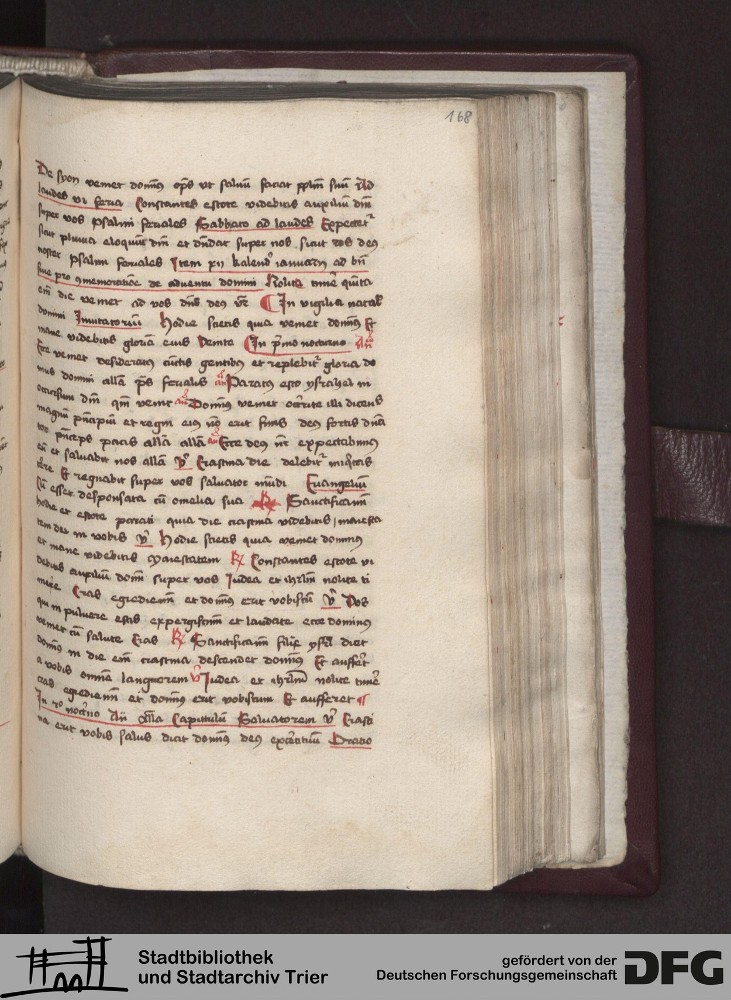 168
De syon veniet domin9 ops vt saluu faciat pplm suu Ad
laudes vi feria Constantes estote videbitis auxiliu dni
super vos psalmi feriales Sabbato ad laudes Expectet
sicut pluuia eloquiu dni et dndat super nos sicut ros de9
noster psalmi feriales Item xij kalend ianuarij ad bn
siue pro 9memoratioe de aduentu domini Nolite time quinta
em die veniet ad vos dns de9 vr In vigilia natal
domini Inuitatoriu Hodie scietis quia veniet domin9 Et
mane videbitis gloria eius Venite In pmo nocturno Añ
Ecce veniet desiderat9 cunctis gentib9 et replebit gloria do
mus domini alla ps ferialis añ Parat9 esto ysrahel in
occursum dni qm venit añ Domin9 veniet occurite illi dicens
magnu pncipiu et regni ei9 no erit finis de9 fortis dna
tor pnceps pacis alla alla añ Ecce de9 nr expectabim9
eu et saluabit nos alla V Crastina die delebit iniqtas
terre Et regnabit super vos saluator mudi Euangeliu
Cu esset desponsata cu omelia sua R Sanctificamini
hodie et estote parati quia die crastina videbitis maiesta
tem dei in vobis V Hodie scietis quia veniet dominus
et mane videbitis Maiestatem R Constantes estote vi
debitis auxiliu domi super vos Iudea et ihrlm nolite ti
mere Cras egrediemi et domin9 erit vobiscu V Vos
qui in puluere estis expergiscimi et laudate ecce dominus
veniet cu salute Cras R Sanctificamini filij ysrl dicit
domin9 in die em crastina descendet domin9 Et auffert
a vobis omne languorem V Iudea et ihrlm nolite time
cras egrediemi et domin9 erit vobiscum Et aufferet
In 2o noctno Añ Alla Capitulu Saluatorem V Crasti
na erit vobis salus dicit domin9 de9 exercituu Oratio
Stadtbibliothek
und Stadtarchiv Trier
gefördert von der
Deutschen Forschungsgemeinschaft
DFG